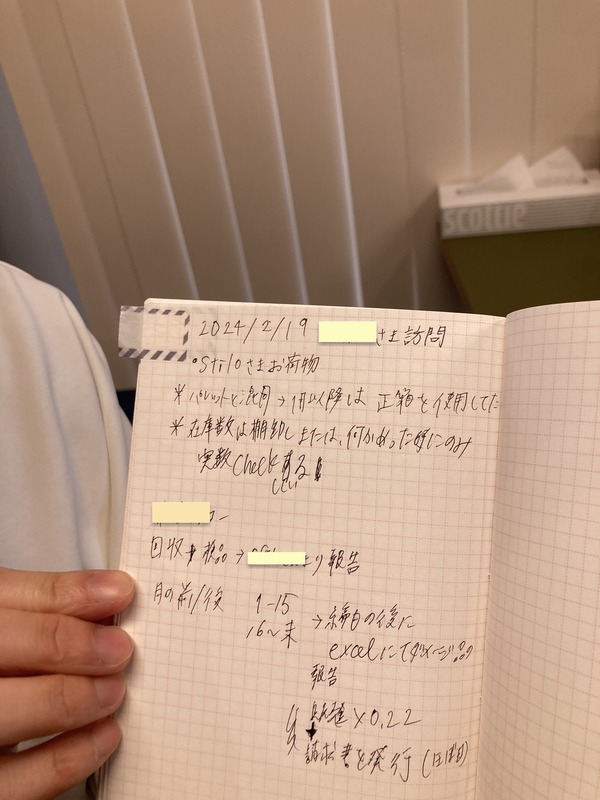 scottie
2024/2/19 さま訪問
・Stiloさまお荷物
* パレットと混同→1月以降は 正箱を使用してた
* 在庫数は棚卸しまたは、何かあった時にのみ
実数Checkする
ー
回収+検品→ より報告
月の前/後 1-15
16〜末 →締日の後に
excelにてダメージ品の
報告
×0.22
請求書を発行